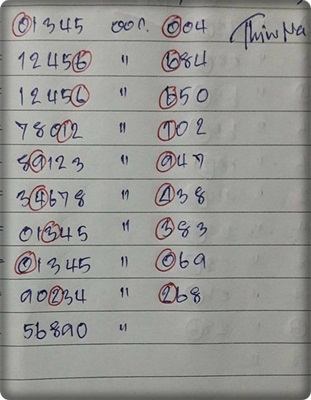 01345 ออก. 004
12456 " 684
12456 " 650
78012 " 102
89123 " 947
34678 " 438
01345 " 383
01345 " 069
90234 " 268
56890 "